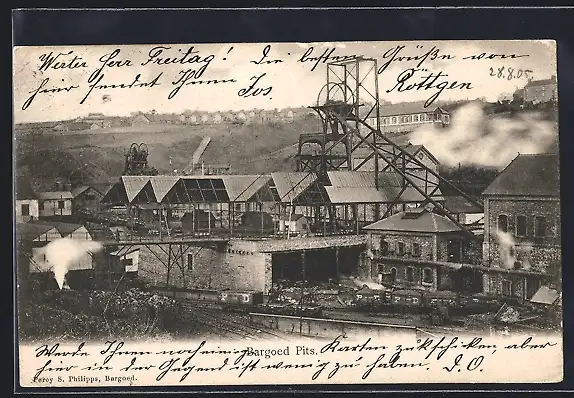 Werter Herr Freitag! Die besten Grüße von
hier sendet Ihnen Jos. Röttgen
28.8.05
Werde Ihnen noch einige Karten zukschicken, aber
Bargoed Pits.
hier in der Gegend ist wenig zu haben. D.O.
Percy S. Philipps, Bargoed.